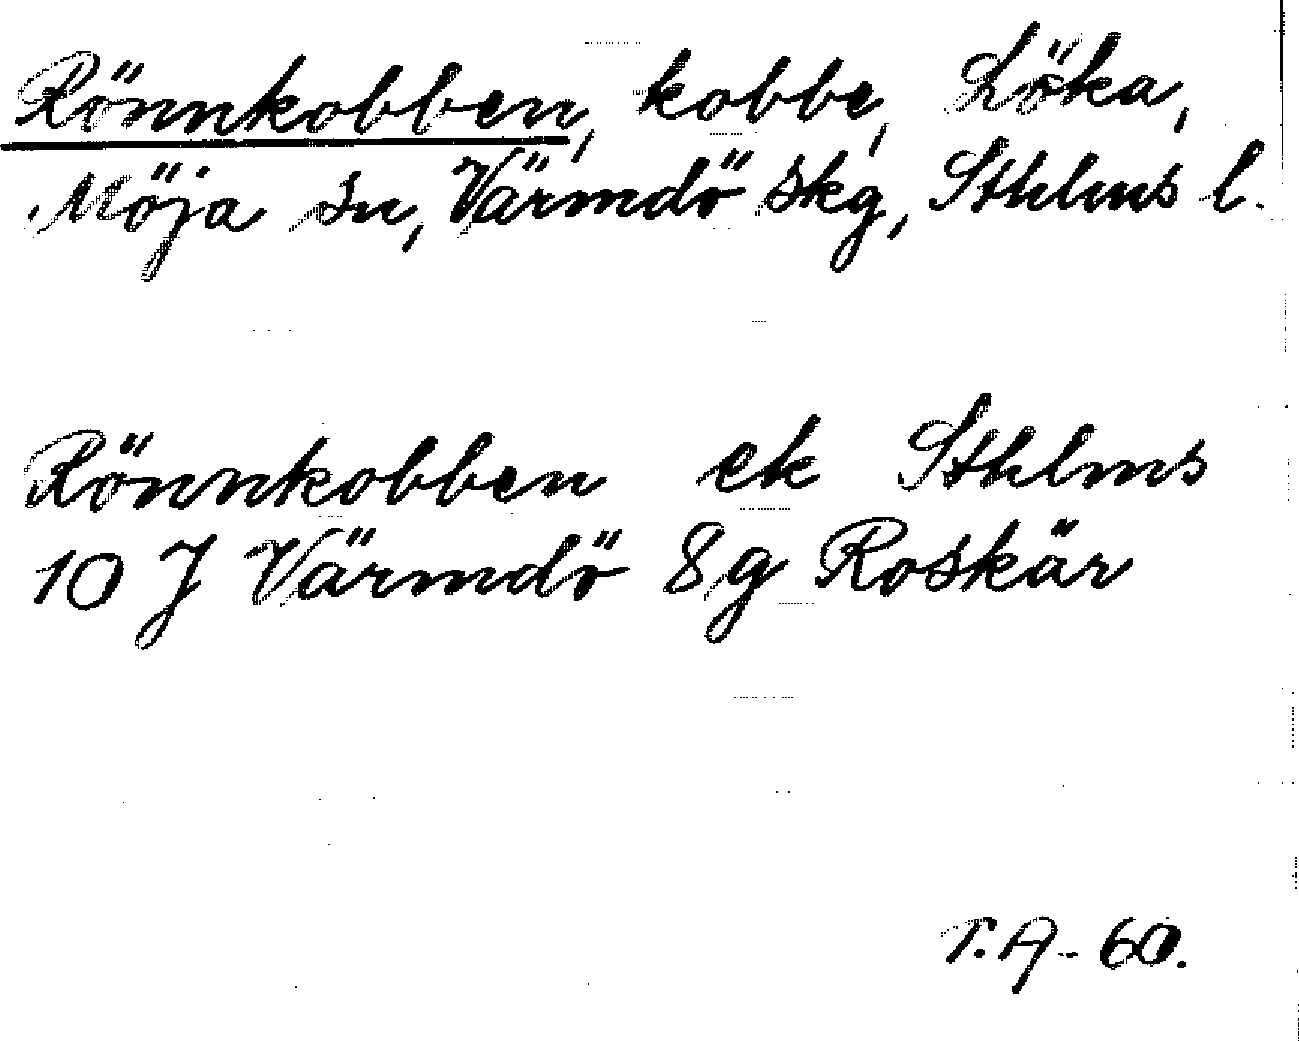 Rönnkobben, kobbe, Löka,
Möja sn, Värmdö skg, Sthlms l.
Rönnkobben ek Sthlms
10 J Värmdö 8g Roskär
T.A-60.